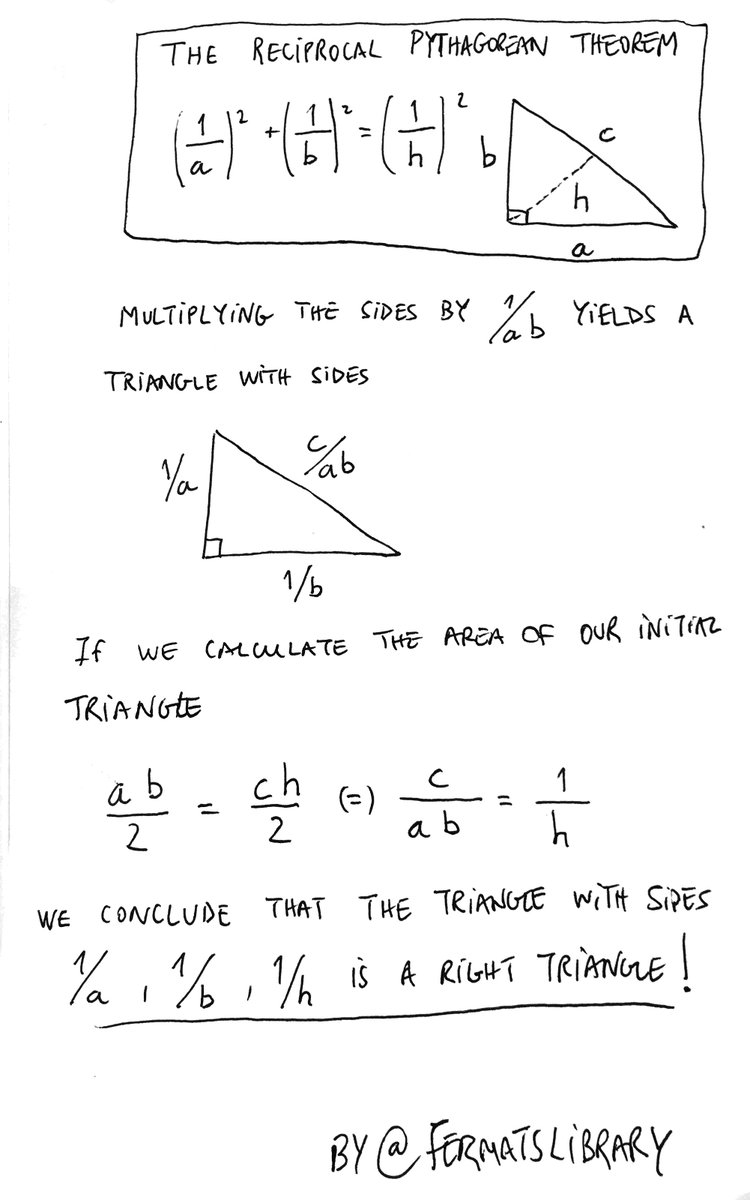 THE RECIPROCAL PYTHAGOREAN THEOREM
(1/a)² + (1/b)² = (1/h)²
b
c
h
a
MULTIPLYING THE SIDES BY 1/ab YIELDS A
TRIANGLE WITH SIDES
1/a
c/ab
1/b
If WE CALCULATE THE AREA OF OUR INITIAL
TRIANGLE
ab/2 = ch/2 (=) c/ab = 1/h
WE CONCLUDE THAT THE TRIANGLE WITH SIDES
1/a, 1/b, 1/h IS A RIGHT TRIANGLE!
BY @FERMATSLIBRARY